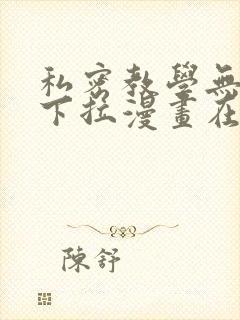 私密教學無
下拉漫畫在
陳舒